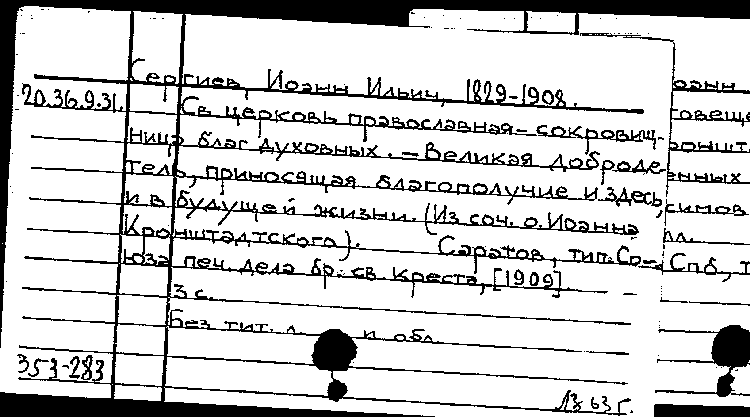 Сергиев, Иоанн Ильич, 1829-1908.
20.36.9.31. Св церковь православная - сокровищ-
ница благ духовных. - Великая доброде-
тель, приносящая благополучие и здесь,
и в будущей жизни. (Из соч. о. Иоанна
Кронштадтского). Саратов, тип. Со-
юза печ. дела бр. св. Креста, [1909].
3 с.
Без тит. л. и обл.
353-283
63 г.
оанн
овеще
роншт
енных
симов
лл.
Спб., т